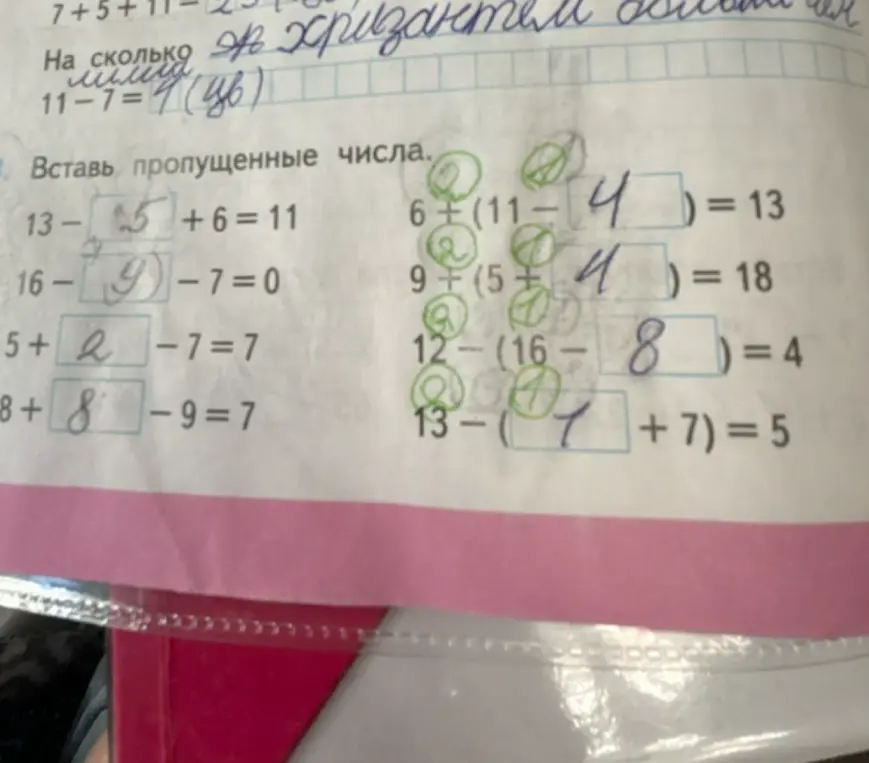 7 + 5 + 11 =
На сколько хризантем больше чем
лилий
11 – 7 = 4 (цв)
Вставь пропущенные числа.
13 – 5 + 6 = 11
16 – 9 – 7 = 0
5 + 2 – 7 = 7
8 + 8 – 9 = 7
2 1
6 + (11 – 4) = 13
2 1
9 + (5 + 4) = 18
2 1
12 – (16 – 8) = 4
2 1
13 – (1 + 7) = 5